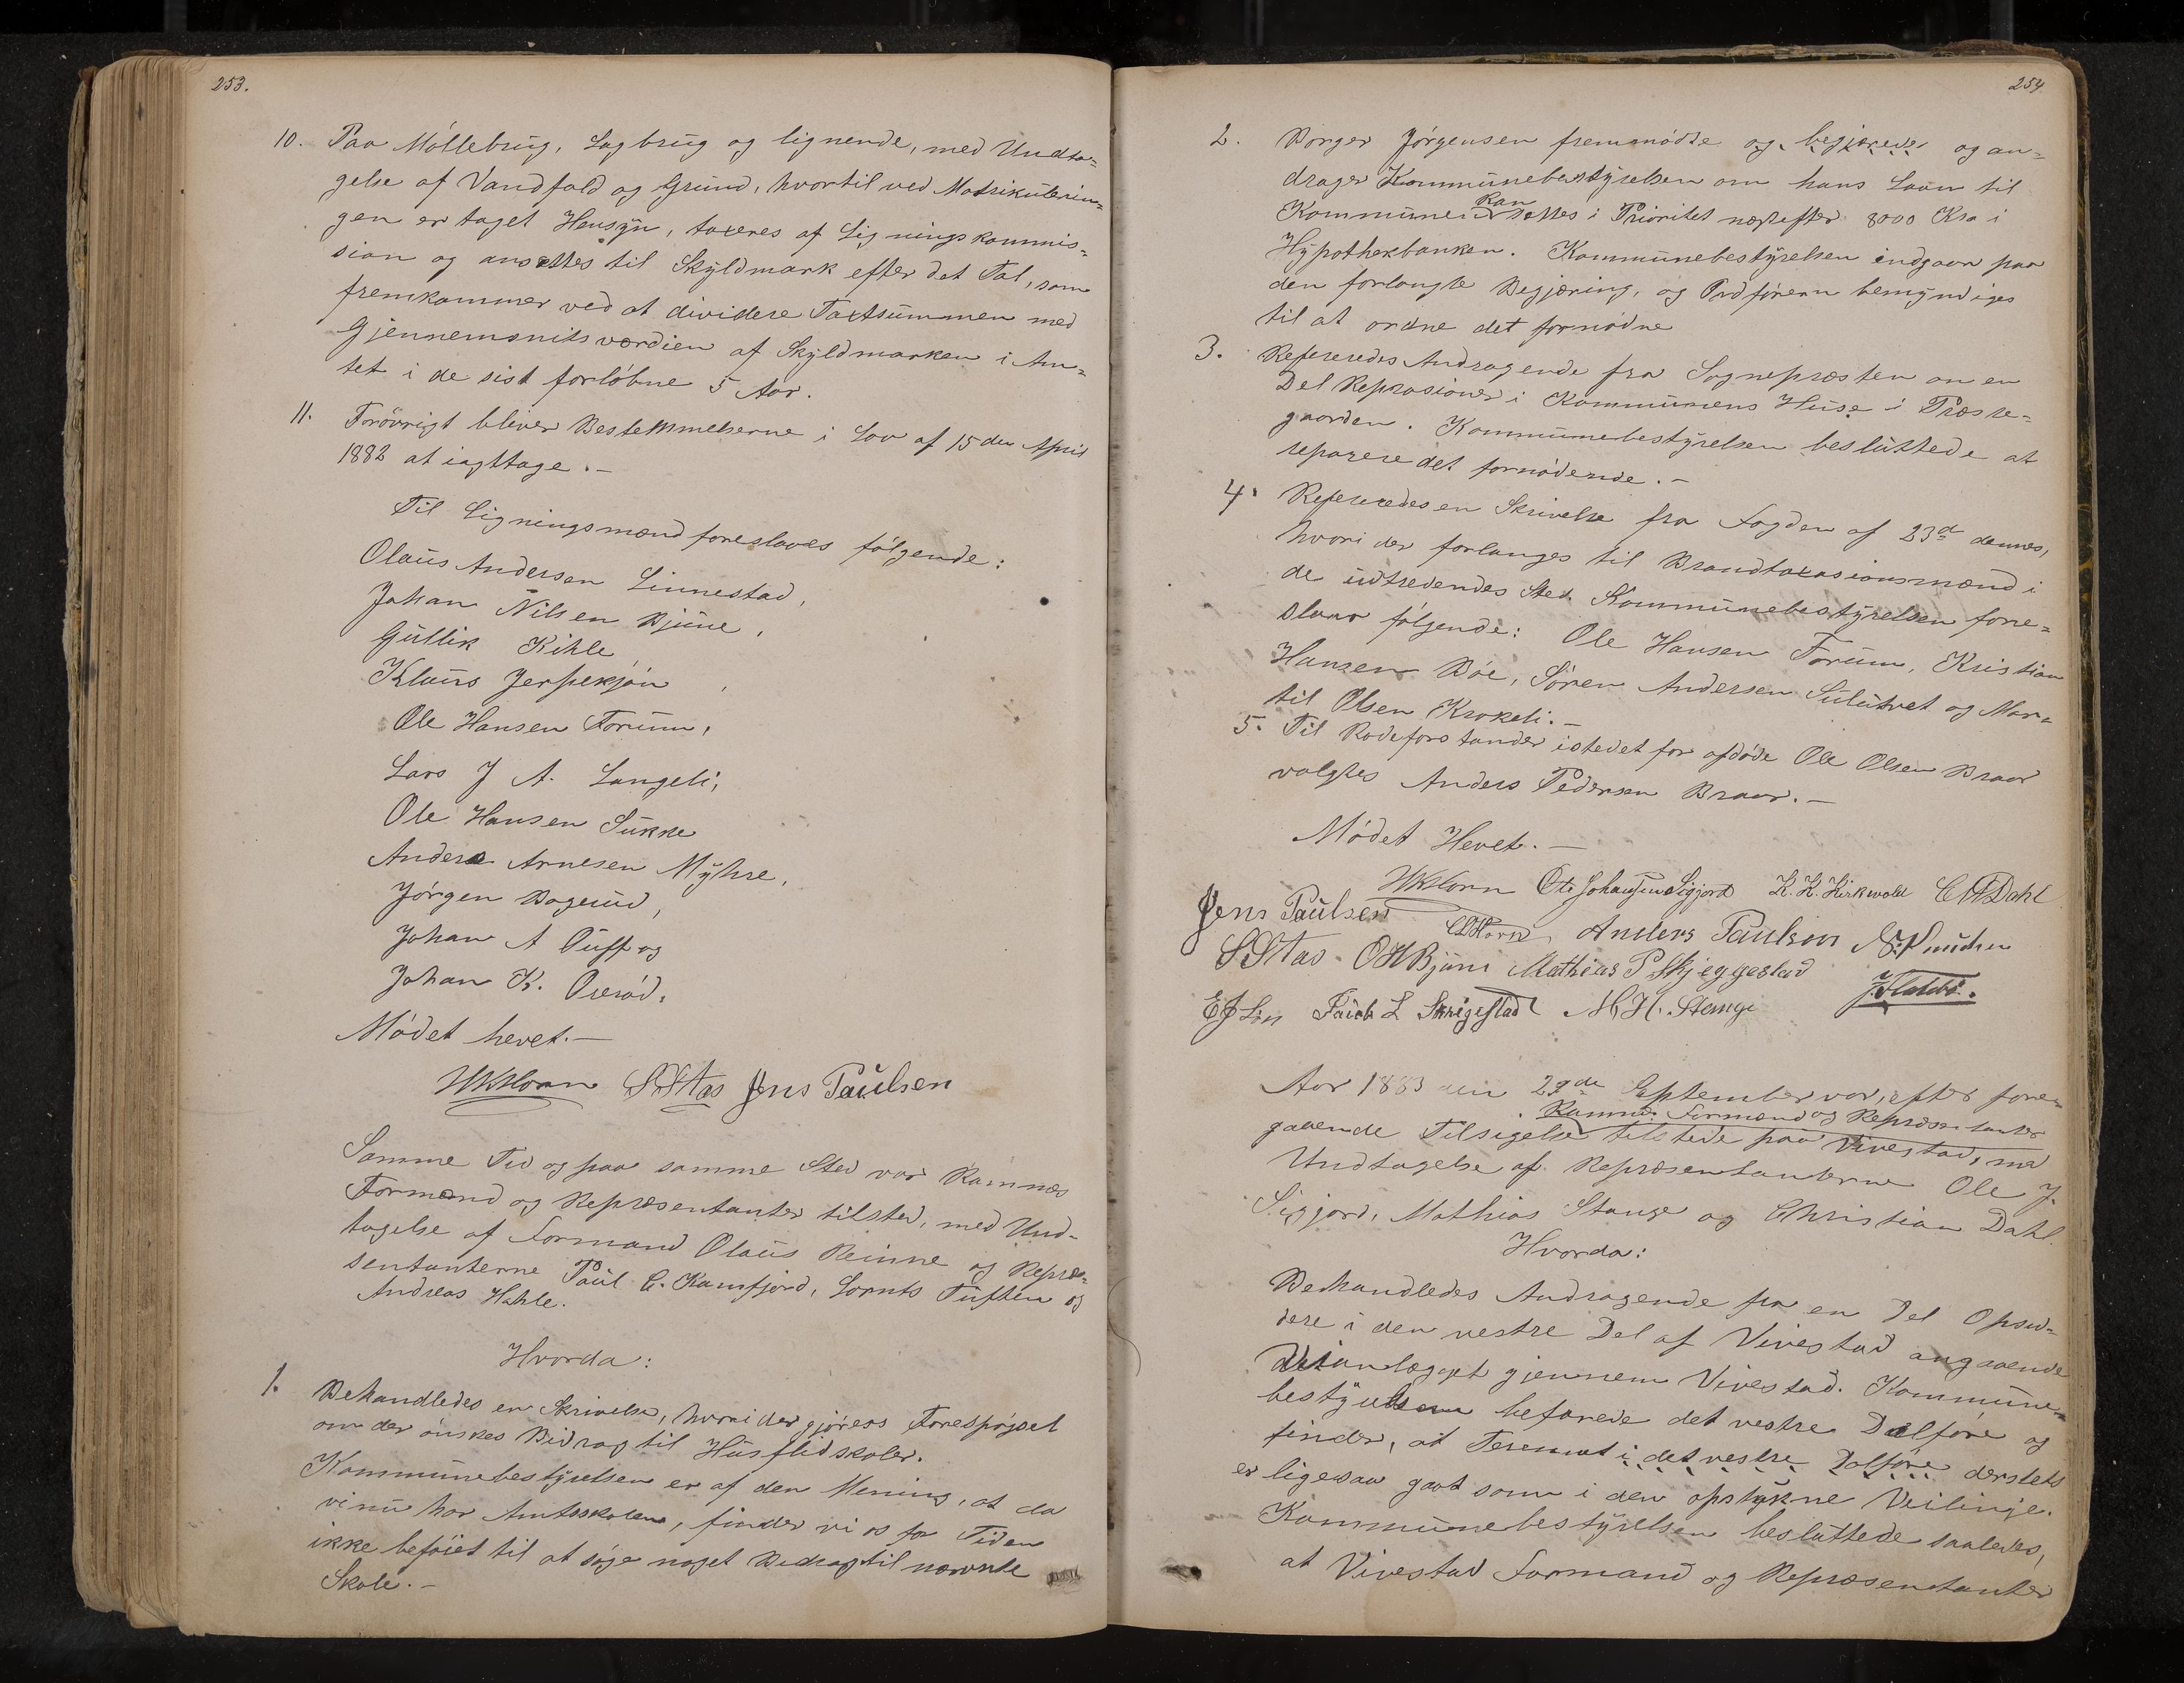 253.
10. Paa Möllebrug, Sagbrug og lignende, med Undta=
gelse af Vandfald og Grund, hvortil ved Matrikulerin=
gen er taget Hensyn, taxeres af Ligningskommis=
sion og ansættes til Skyldmark efter det Tal, som
fremkommer ved at dividere Taxtsummen med
Gjennemsnitsværdien af Skyldmarken i Am=
tet i de sist forløbne 5 Aar.
11. Forövrigt bliver Bestemmelserne i Lov af 15den April
1882 at iagttage. –
Til Ligningsmænd foreslaaes følgende:
Olaus Andersen Linnestad,
Johan Nilsen Bjune,
Gullik Kihle
Klaus Jerpekjøn,
Ole Hansen Forum,
Lars J A. Langeli,
Ole Hansen Sukke
Anders Arnesen Myhre,
Jørgen Bagerud,
Johan A Tuff og
Johan K. Oserød.
Mødet hevet. –
HKHorn SSAas Jens Paulsen
Samme Tid og paa samme Sted var Ramnæs
Formænd og Repræsentanter tilsted, med Und-
tagelse af Formand Olaus Reinne og Repræ=
sentanterne Paul C. Kamfjord, Lornts Tuften og
Andreas Hahle.
Hvorda:
1. Behandledes en Skrivelse, hvori der gjøress Forespørgsel
om der ønskes Bidrag til Husflidskoler.
Kommunebestyrelsen er af den Mening, at da
vi nu har Amtsskolene, finder vi os for Tiden
ikke beføiet til at søge noget Bidrag til nævnte
Skole. –
254
2. Borger Jørgensen fremmødte og begjærede og an=
drager Kommunebestyrelsen om hans Laan til
Kommunen kan sættes i Prioritet næstefter 8000 Kro i
Hypothekbanken. Kommunebestyrelsen indgaar paa
den forlangte Begjæring, og Ordføreren bemyndiges
til at ordne det fornødne
3. Refereredes Andragende fra Sognepræsten om en
Del Reprasioner i Kommunens Huse i Præste=
gaarden. Kommunebestyrelsen besluttede at
reparere det fornødende. –
4. Refereredes en Skrivelse fra Fogden af 23d dennes,
hvori der forlanges til Brandtaxasionsmænd i
de udtredendes Sted. Kommunebestyrelsen fore=
slaar følgende: Ole Hansen Forum, Kristian
Hansen Bøe, Søren Andersen Sulutvet og Mar=
til Olsen Krokeli. –
5. Til Rodeforstander istedet for afdøde Ole Olsen Braar
valgtes Anders Pedersen Braar. –
Mødet Hevet. –
HKHorn Ole Johansen Sigjord K. K. Kirkevold C A Dahl
Jens Paulsen CHorn, Anders Paulson N. Knudsen
SSAas OHBjune Mathias P Skjeggestad
EJ Lin Jacob L Skrigestad M. H. Stange
Aar 1883 den 29de September var, efter fore=
gaaende Tilsigelse Ramnæs Formænd og Repræsentanter tilstede paa Vivestad, med
Undtagelse af Repræsentanterne Ole J.
Sigjord, Mathias Stange og Christian Dahl.
Hvorda:
Behandledes Andragende fra en Del Opsid=
dere i den vestre Del af Vivestad angaaende
Veianlægget gjennem Vivestad. Kommune=
bestyrelsen befarede det vestre Dalføre og
finder, at Terænet i det vestre Dalføre derstets
er ligesaa godt som i den opstukne Veilinje.
Kommunebestyrelsen besluttede saaledes,
at Vivestad Formand og Repræsentanter